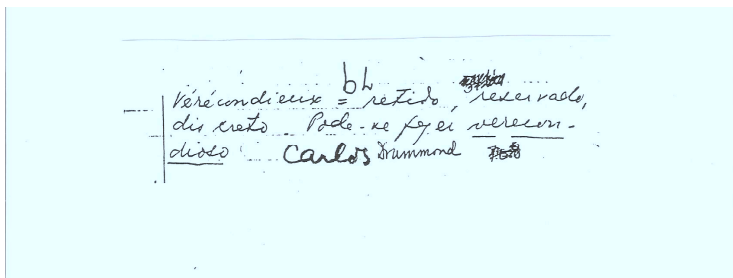 bL
Vérécondieux = retido, reservado,
discreto. Pode-se
verecon-
dioso Carlos Drummond